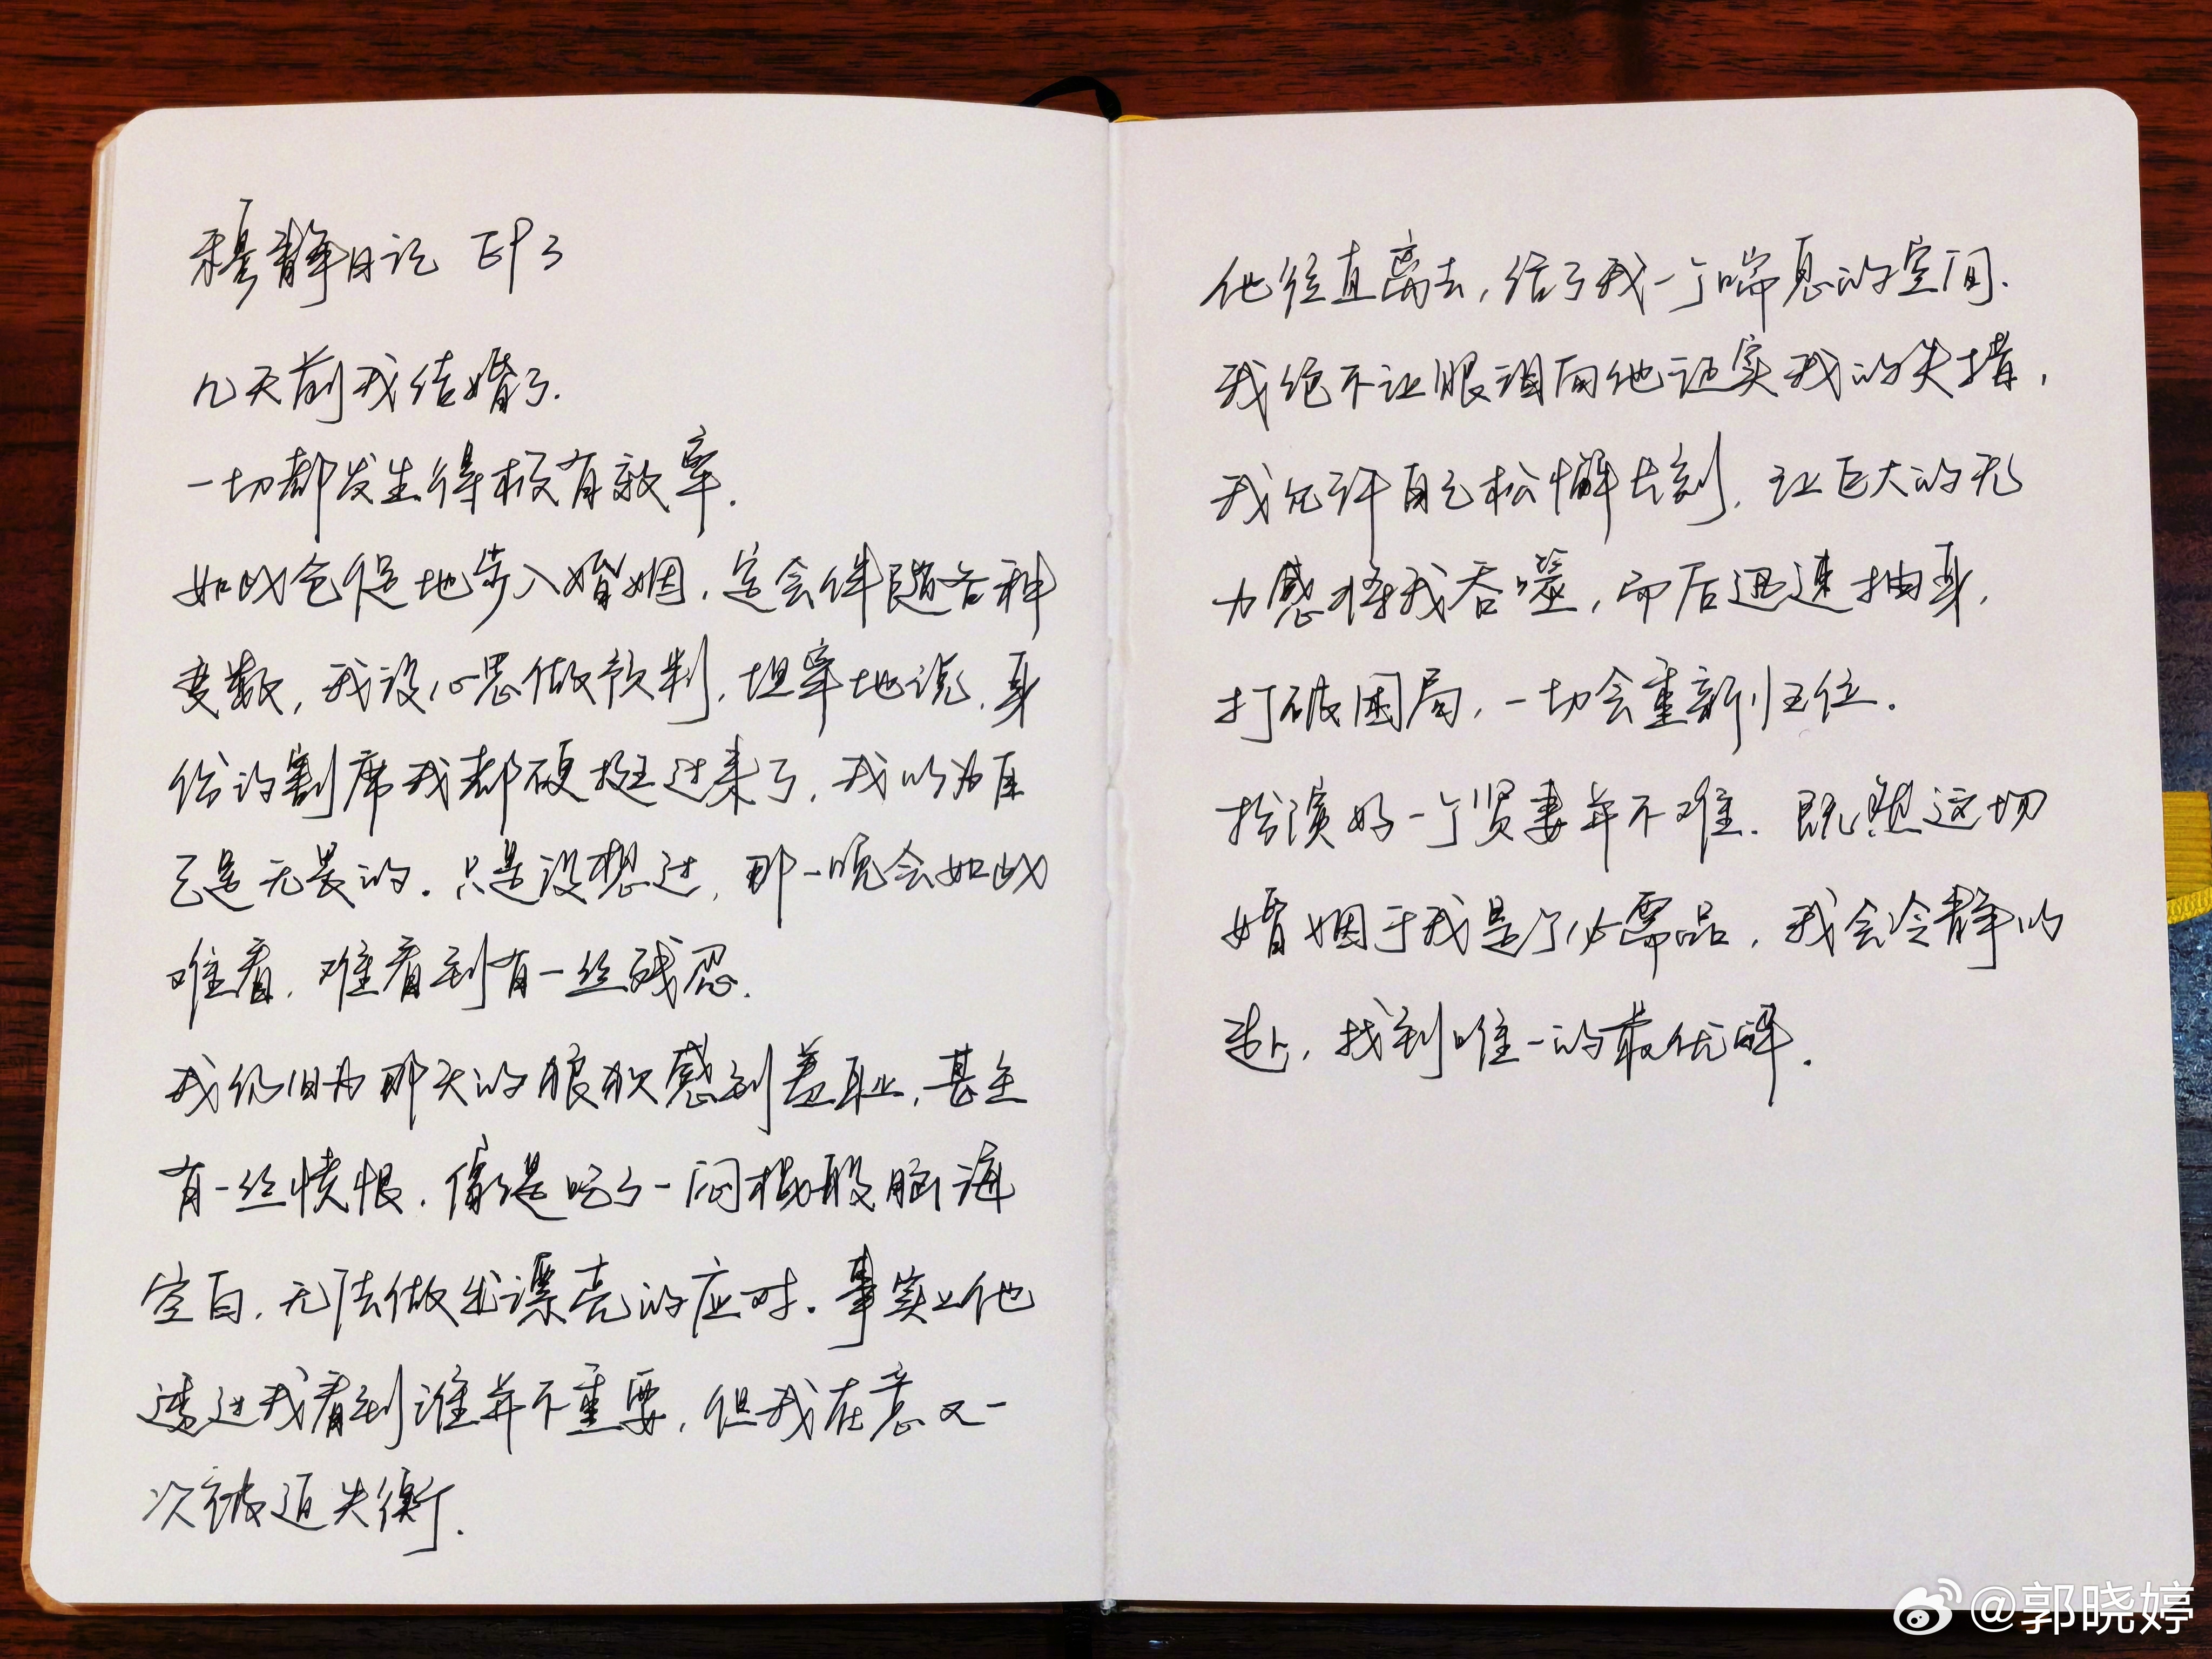 穆静日记 EP3
几天前我结婚了.
一切都发生得极有效率.
如此仓促地步入婚姻,定会伴随各种
变数,我没心思做预判,坦率地说,身
份的割席我都硬挺过来了,我以为自
己是无畏的.只是没想过,那一晚会如此
难看,难看到有一丝残忍.
我仍旧为那天的狼狈感到羞耻,甚至
有一丝愤恨.像是吃了一闷棍般脑海
空白,无法做出漂亮的应对.事实上他
透过我看到谁并不重要,但我在意又一
次被迫失衡.
他径直离去,给了我一个喘息的空间.
我绝不让眼泪向他证实我的失措,
我允许自己松懈片刻,让巨大的无
力感将我吞噬,而后迅速抽身,
打破困局,一切会重新归位.
扮演好一个贤妻并不难.既然这切
婚姻于我是个必需品,我会冷静的
找到唯一的最优解.
@郭晓婷